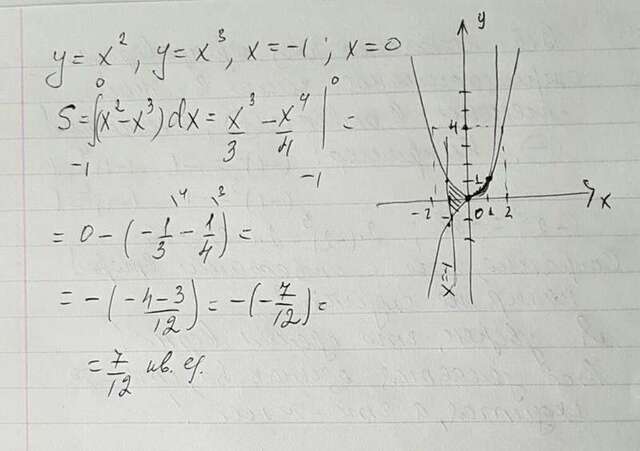 y = x², y = x³, x = -1; x = 0
S = ∫₋₁⁰ (x² - x³) dx = x³/3 - x⁴/4 |₋₁⁰ =
= 0 - (-1/3 \⁴ - 1/4 \³) =
= -(-4-3/12) = -(-7/12) =
= 7/12 кв. ед.
y
4
1
-2 0 1 2 x
x=-1